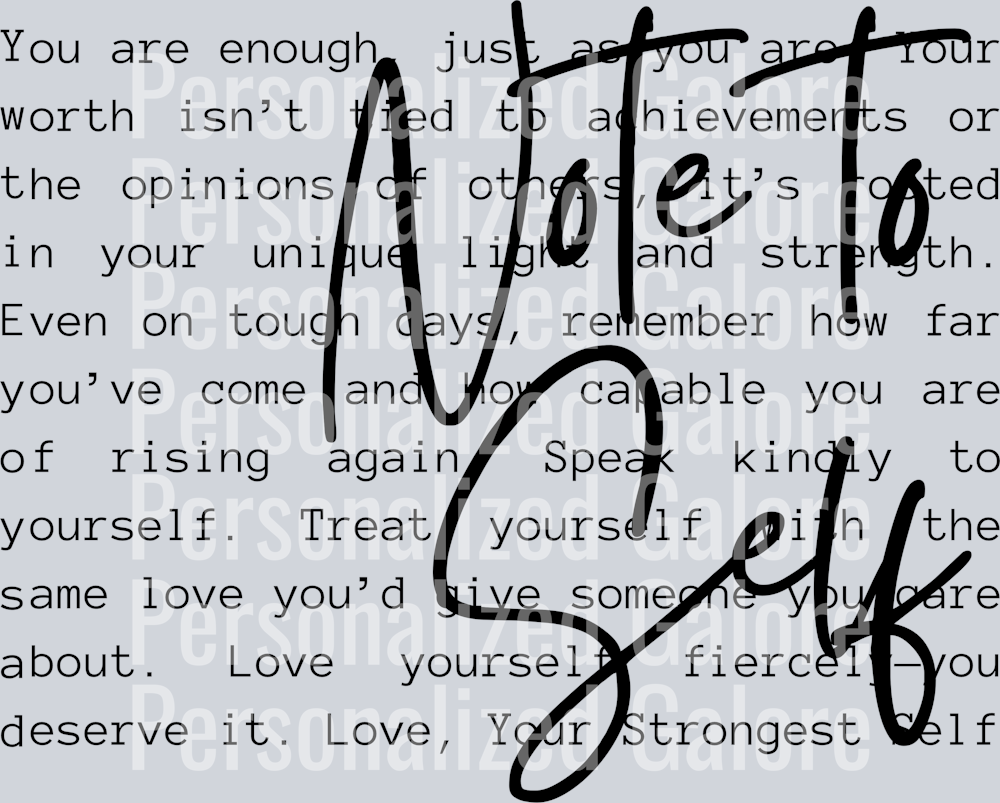 You are enough, just as you are. Your
worth isn’t tied to achievements or
the opinions of others, it’s rooted
in your unique light and strength.
Even on tough days, remember how far
you’ve come and how capable you are
of rising again. Speak kindly to
yourself. Treat yourself with the
same love you’d give someone you care
about. Love yourself fiercely—you
deserve it. Love, Your Strongest Self
Note To
Self
Personalized Galore
Personalized Galore
Personalized Galore
Personalized Galore
Personalized Galore
Personalized Galore
Personalized Galore